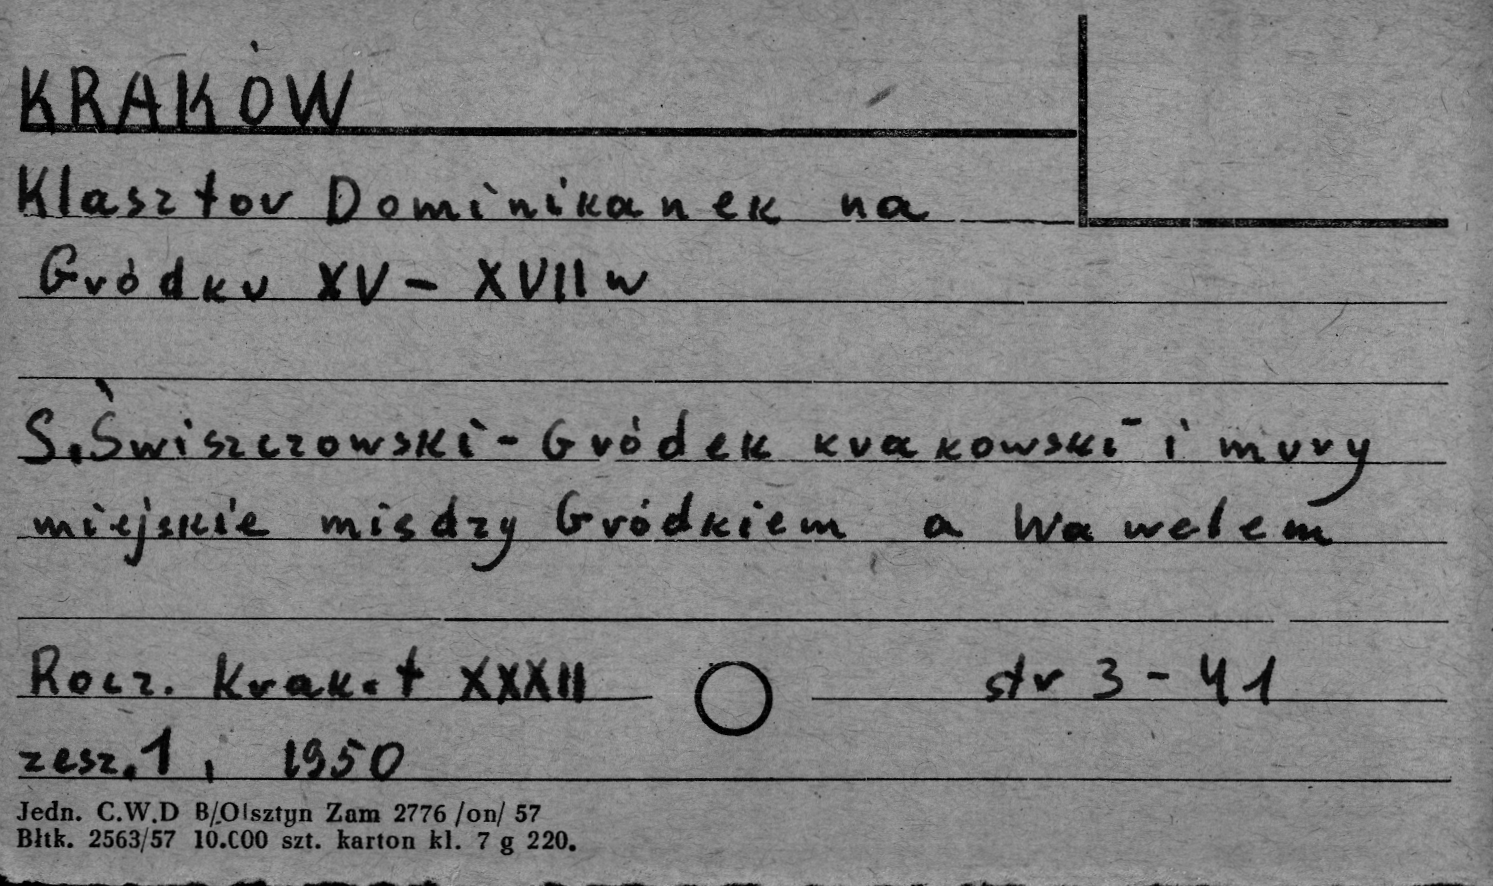 KRAKÓW
Klasztor Dominikanek na
Gródku XV - XVII w
S. Świszczowski - Gródek krakowski i mury
miejskie misdzy Gródkiem a Wawelem
Rocz. Krak. t XXXII str 3 - 41
zesz. 1, 1950
Jedn. C.W.D B/Olsztyn Zam 2776 /on/ 57
Błtk. 2563/57 10.000 szt. karton kl. 7 g 220.